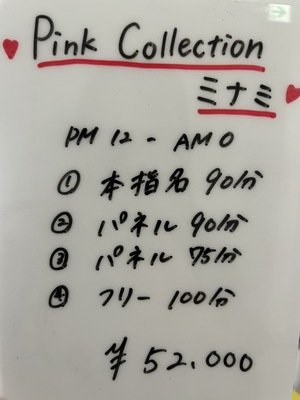 Pink Collection
ミナミ
PM 12 - AM 0
① 本指名 90分
② パネル 90分
③ パネル 75分
④ フリー 100分
¥ 52.000